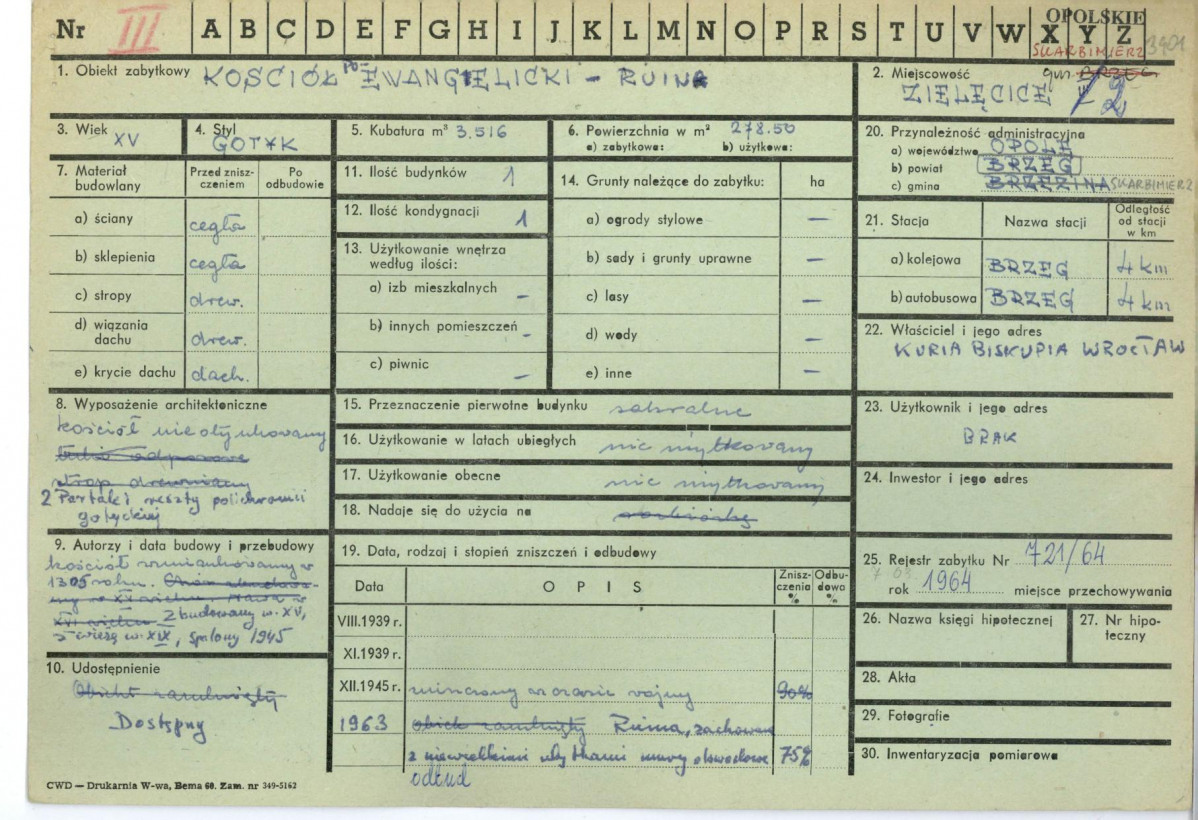 Nr III A B C D E F G H I J K L M N O P R S T U V W X Y Z
OPOLSKIE
SKARBIMIERZ 3401
1. Obiekt zabytkowy KOŚCIÓŁ PO-EWANGIELICKI – RUINA
2. Miejscowość gm. BRZEG
ZIELĘCICE
3. Wiek XV
4. Styl GOTYK
5. Kubatura m³ 3.516
6. Powierzchnia w m² 278.50
a) zabytkowa: b) użytkowa:
20. Przynależność administracyjna
a) województwo OPOLE
b) powiat BRZEG
c) gmina BRZEZINA SKARBIMIERZ
7. Materiał budowlany
Przed zniszczeniem
Po odbudowie
a) ściany cegła
b) sklepienia cegła
c) stropy drew.
d) wiązania dachu drew.
e) krycie dachu dach.
11. Ilość budynków 1
12. Ilość kondygnacji 1
13. Użytkowanie wnętrza według ilości:
a) izb mieszkalnych –
b) innych pomieszczeń –
c) piwnic –
14. Grunty należące do zabytku: ha
a) ogrody stylowe –
b) sady i grunty uprawne –
c) lasy –
d) wody –
e) inne –
21. Stacja
Nazwa stacji
Odległość od stacji w km
a) kolejowa BRZEG 4 km
b) autobusowa BRZEG 4 km
22. Właściciel i jego adres
KURIA BISKUPIA WROCŁAW
8. Wyposażenie architektoniczne
kościół nieotynkowany
strop drewniany
2 Portale i reszty polichromii
gotyckiej
15. Przeznaczenie pierwotne budynku sakralne
16. Użytkowanie w latach ubiegłych nie użytkowany
17. Użytkowanie obecne nie użytkowany
18. Nadaje się do użycia na rozbiórkę
23. Użytkownik i jego adres
BRAK
24. Inwestor i jego adres
9. Autorzy i data budowy i przebudowy
kościół wzmiankowany w
1305 roku.
Zbudowany w. XV,
z wieżą w. XIX, spalony 1945
19. Data, rodzaj i stopień zniszczeń i odbudowy
Data
OPIS
Zniszczenia %
Odbudowa %
VIII.1939 r.
XI.1939 r.
XII.1945 r. zniszczony w czasie wojny 90%
1963 obiekt zamknięty Ruina, zachowane
z niewielkimi ubytkami mury obwodowe 75%
odtąd
10. Udostępnienie
Obiekt zamknięty
Dostępny
25. Rejestr zabytku Nr 721/64
rok 1964 miejsce przechowywania
26. Nazwa księgi hipotecznej
27. Nr hipoteczny
28. Akta
29. Fotografie
30. Inwentaryzacja pomiarowa
CWD — Drukarnia W-wa, Bema 60. Zam. nr 349-5162